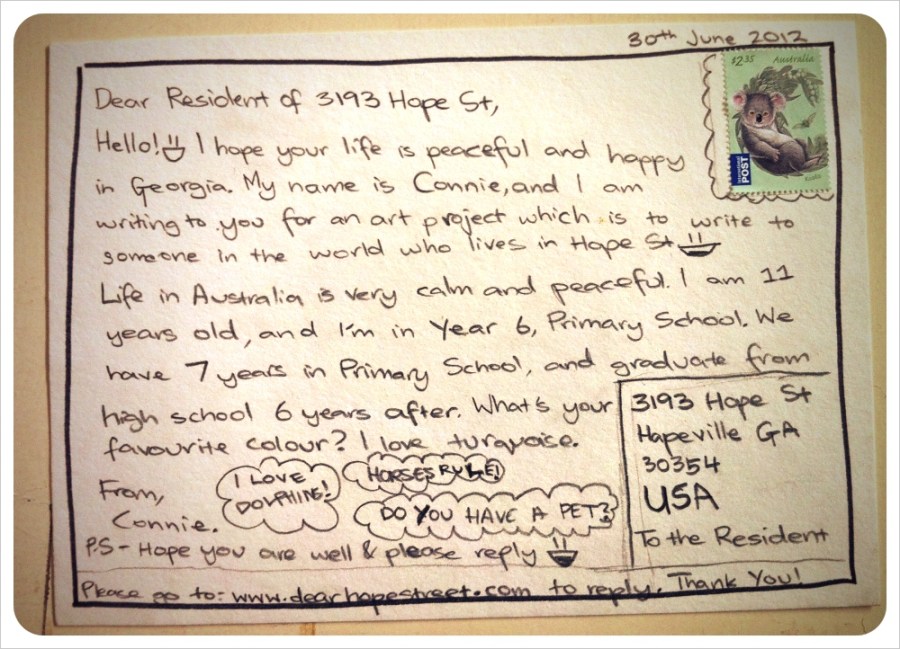 30th June 2012
$2.35 Australia
International POST
Koala
Dear Resident of 3193 Hope St,
Hello! I hope your life is peaceful and happy
in Georgia. My name is Connie, and I am
writing to you for an art project which is to write to
someone in the world who lives in Hope St
Life in Australia is very calm and peaceful. I am 11
years old, and I'm in Year 6, Primary School. We
have 7 years in Primary School, and graduate from
high school 6 years after. What's your
favourite colour? I love turquoise.
I LOVE
DOLPHINS!
HORSES RULE!
DO YOU HAVE A PET?
From,
Connie.
P.S - Hope you are well & please reply
3193 Hope St
Hapeville GA
30354
USA
To the Resident
Please go to: www.dearhopestreet.com to reply. Thank You!